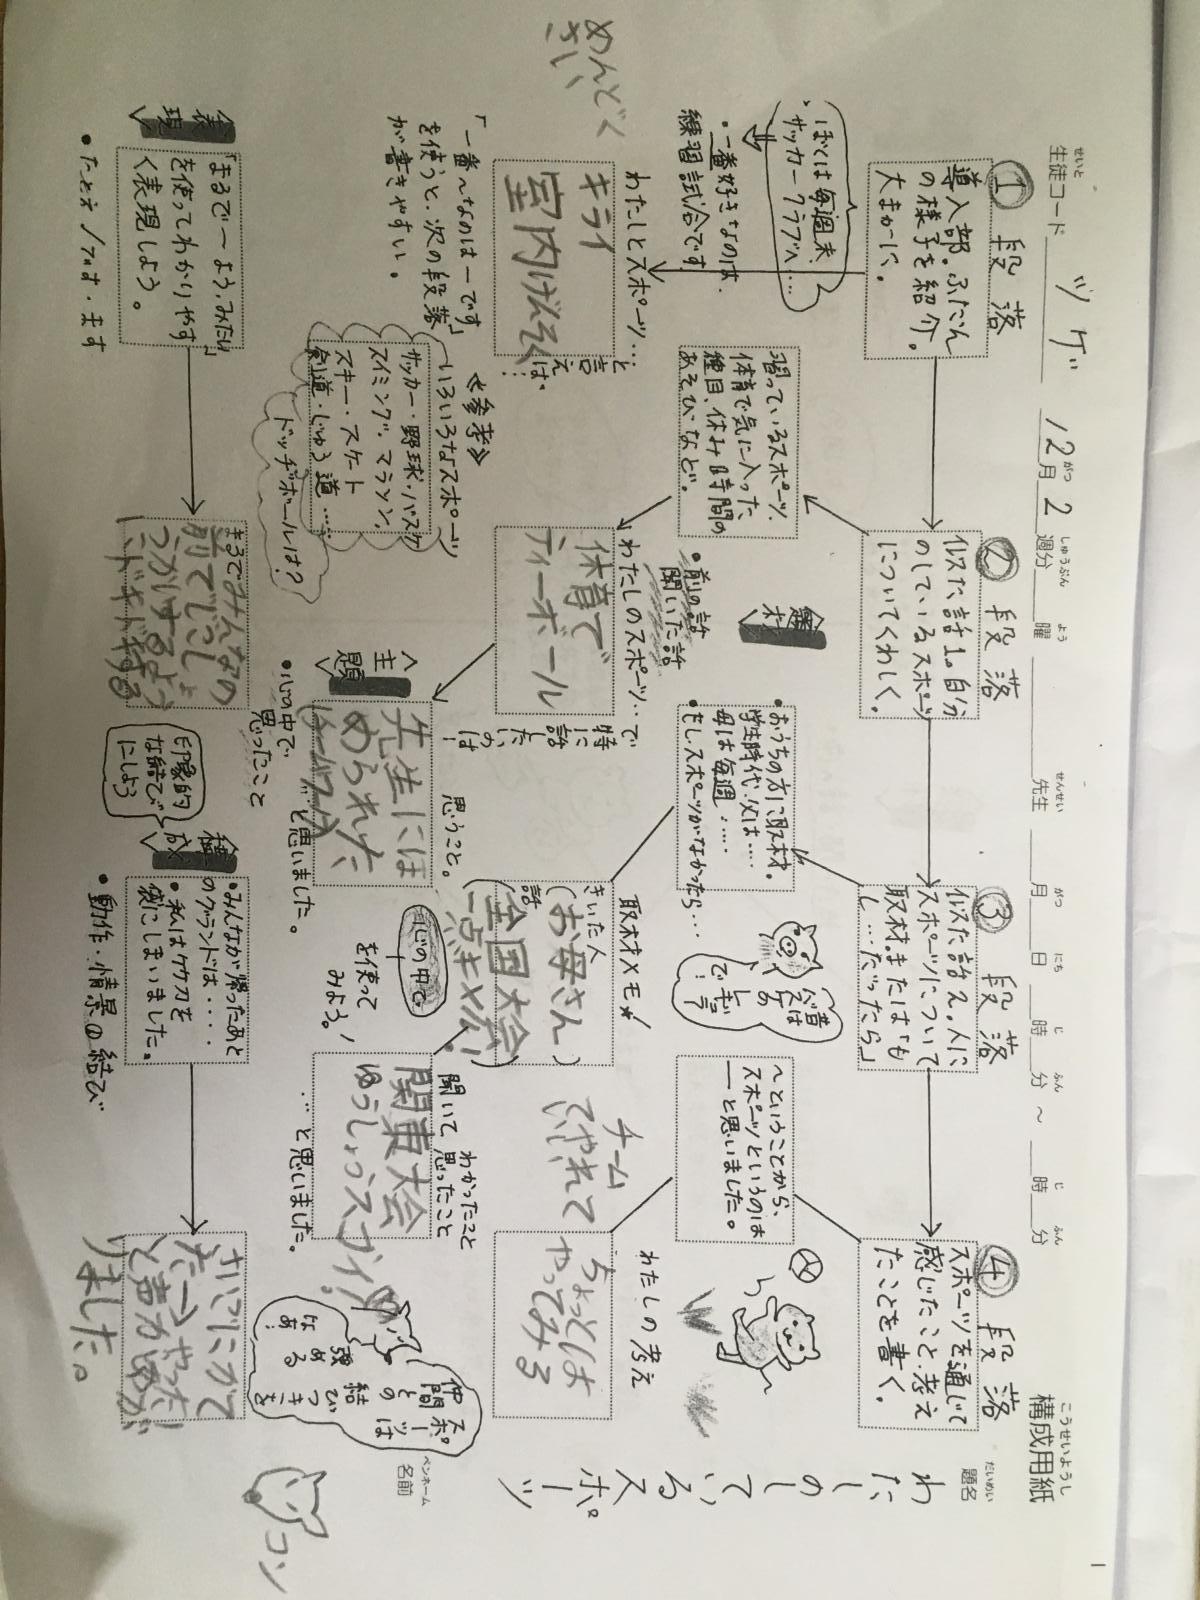 構成用紙
こうせいようし
生徒コード
せいと
ツゲ
12月2週分
がつ
しゅうぶん
曜
よう
先生
せんせい
月
がつ
日
にち
時
じ
分
ふん
～
時
じ
分
ふん
題名
だいめい
わたしのしているスポーツ
ペンネーム
名前
コン
① 段落
導入部。ふだん
の様子を紹介。
大まかに。
ぼくは毎週末、
サッカークラブへ…
・一番好きなのは、
練習試合です
わたしとスポーツ…
と言えば、
キライ
室内
「一番～なのは―です」
を使うと、次の段落
が書きやすい。
めんどく
さい
<表現>
「まるで～よう、みたい」
を使ってわかりやす
く表現しよう。
● たとえ
② 段落
似た話1。自分
のしているスポーツ
についてくわしく。
習っているスポーツ、
体育で気に入った
種目、休み時間の
あそび、など。
<題材>
● 前の話
聞いた話
わたしのスポーツ…で
特に話したいのは!
体育で
ティーボール
≪参考≫
～いろいろなスポーツ
サッカー・野球・バスケ
スイミング、マラソン、
スキー・スケート
剣道・じゅう道……
ドッヂボールは?
<主題>
● 心の中で
思ったこと
思うこと。
先生にほ
められた
…と思いました。
まるでみんなの
前で
ドキドキする
③ 段落
似た話2。人に
スポーツについて
取材。または「も
し…だったら」
● おうちの方に取材。
学生時代、父は…
母は毎週……
● もし、スポーツがなかったら…
昔は
バスケの
で…
取材メモ★
きいた人
(お母さん)
話
全国大会
一点キメ
心の中で
を使って
みよう。
わかったこと
聞いて、思ったこと
関東大会
ゆうしょうスゴイ!
…と思いました。
<構成>
印象的
な結びで
にしよう
● みんなが帰ったあと
のグランドは・・・・
● 私はケガを
● 動作・情景の結び
④ 段落
スポーツを通じて
感じたこと、考え
たことを書く。
～ということから、
スポーツというのは
―と思いました。
わたしの考え
チーム
ちょっとは
やってみる
スポーツは
仲間との
結びつきを
強める
なあ!
さいごにかて
やった!
と声があが
りました。
1